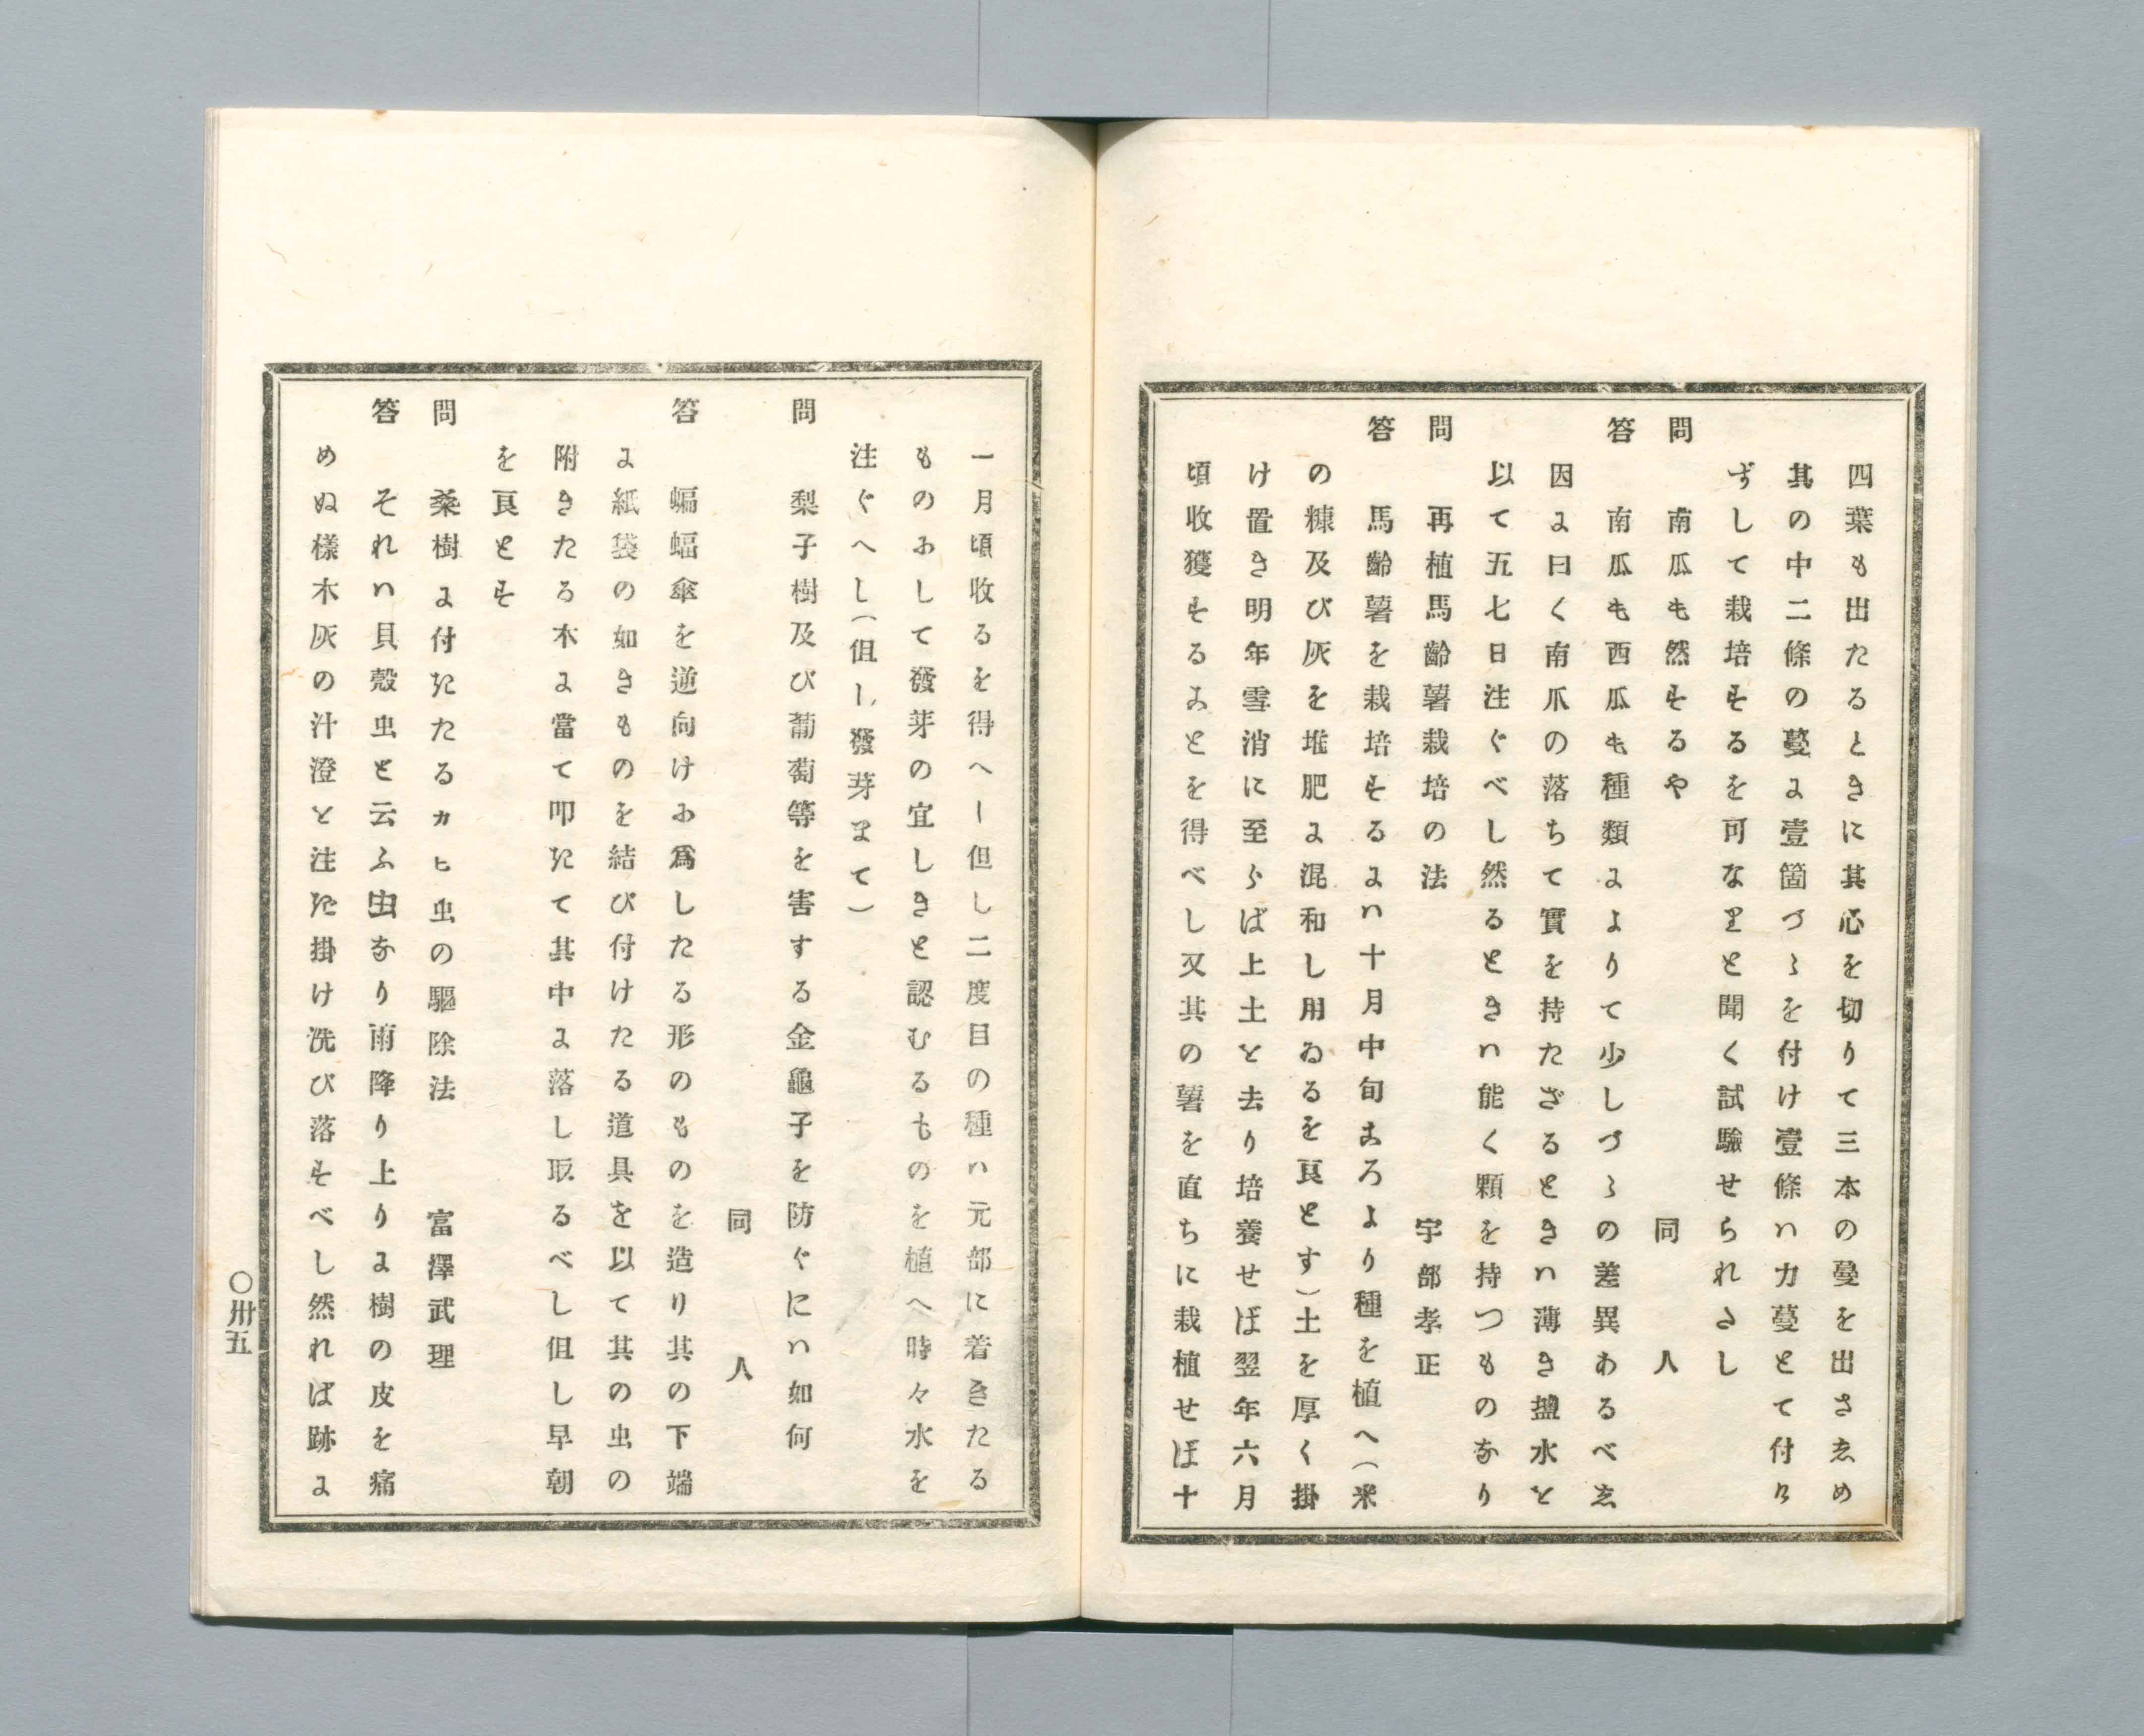 四葉も出たるときに其心を切りて三本の蔓を出さゑめ
其の中二條の蔓に壹箇づゝを付け壹條ハカ蔓とて付け
ずして栽培するを可なりと聞く試驗せられたし
問　南瓜も然するや　同　人
答　南瓜も西瓜も種類によりて少しづゝの差異あるべゑ
因に曰く南爪の落ちて實を持たざるときハ薄き鹽水を
以て五七日注ぐべし然るときハ能く顆を持つものなり
問　再植馬齡薯栽培の法　宇部孝正
答　馬齡薯を栽培するにハ十月中旬ころより種を植へ（米
の糠及び灰を堆肥に混和し用ゐるを良とす）土を厚く掛
け置き明年雪消に至らば上土を去り培養せば翌年六月
頃收獲することを得べし又其の薯を直ちに栽植せば十
一月頃收るを得へし但し二度目の種ハ元部に着きたる
ものみして發芽の宜しきを認むるものを植へ時々水を
注ぐへし（但し發芽まて）
問　梨子樹及び葡萄等を害する金龜子を防ぐにハ如何
同　人
答　蝙蝠傘を逆向けみ爲したる形のものを造り其の下端
に紙袋の如きものを結び付けたる道具を以て其の虫の
附きたる木に當て叩たて其中に落し取るべし但し早朝
を良とす
問　桑樹に付たたるカヒ虫の驅除法　富澤武理
答　それハ貝殼虫と云ふ虫なり雨降り上りに樹の皮を痛
めぬ樣木灰の汁澄を注た掛け洗び落すべし然れば跡に
〇卅五